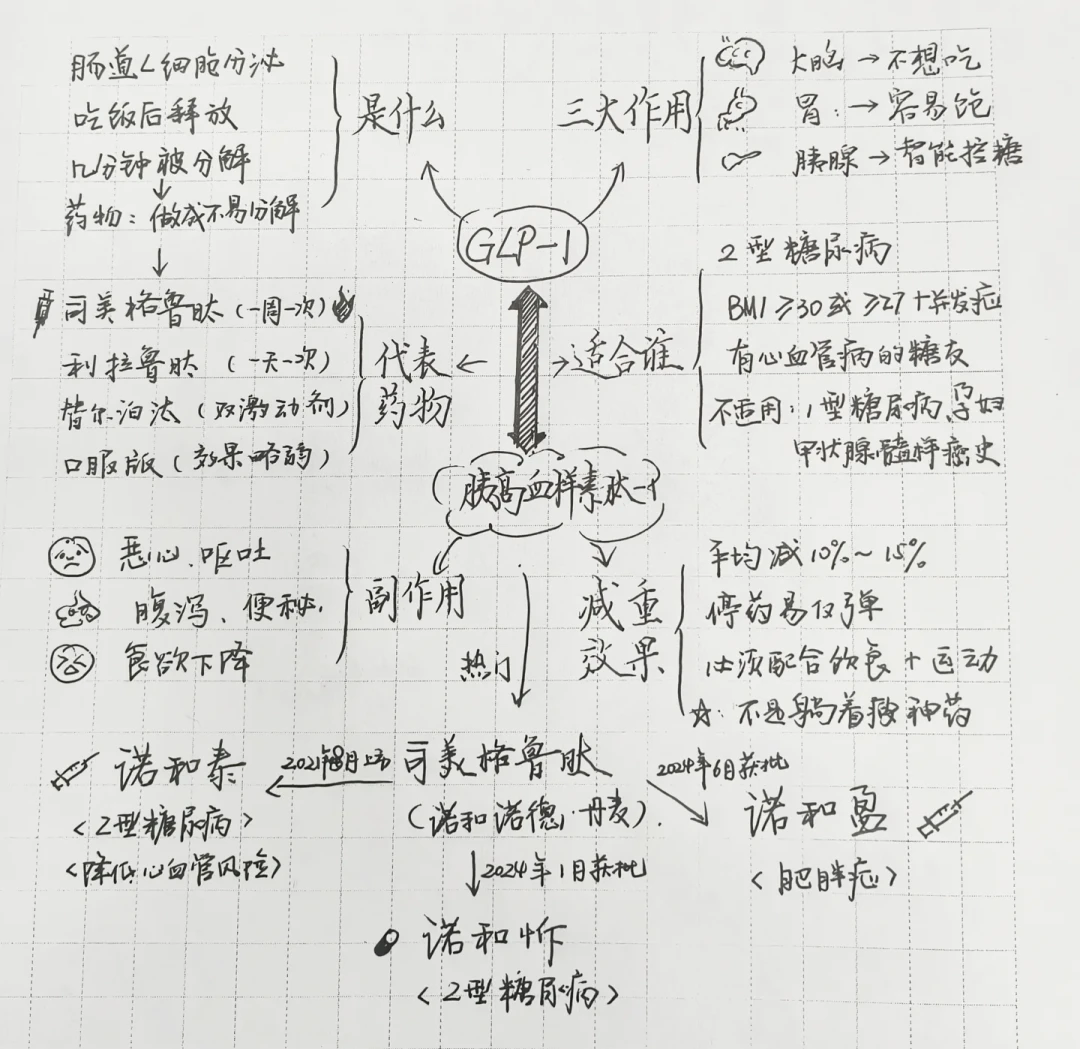 肠道L细胞分泌
吃饭后释放
几分钟被分解
药物：做成不易分解
是什么
三大作用
大脑→不想吃
胃：→容易饱
胰腺→智能控糖
GLP-1
司美格鲁肽(一周一次)
利拉鲁肽(一天一次)
替尔泊汰(双激动剂)
口服版(效果略弱)
代表
药物
适合谁
2型糖尿病
BMI≥30或≥27+并发症
有心血管病的糖友
不适用：1型糖尿病,孕妇
甲状腺髓样癌史
胰高血糖素肽-1
恶心、呕吐
腹泻、便秘、
食欲下降
副作用
热门
减重
效果
平均减10%~15%
停药易反弹
必须配合饮食+运动
☆：不是躺着瘦神药
诺和泰
<2型糖尿病>
<降低心血管风险>
2021年8月上市
司美格鲁肽
(诺和诺德·丹麦).
2024年6月获批
诺和盈
<肥胖症>
2024年1月获批
诺和忻
<2型糖尿病>